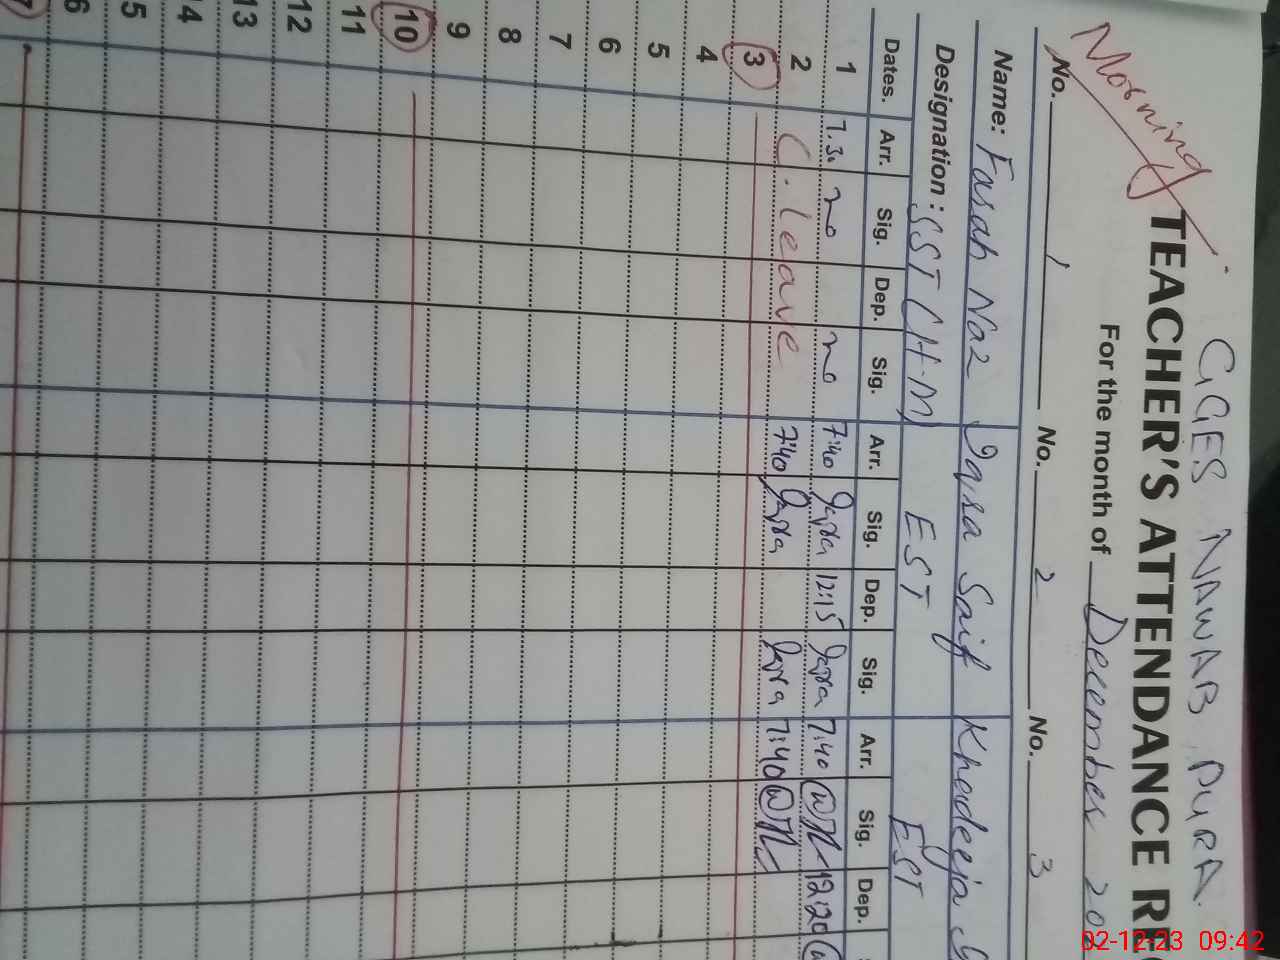 GGES NAWAB PURA
Morning TEACHER'S ATTENDANCE RE
For the month of December 20
No. 1 No. 2 No. 3
Name: Farah Naz Iqsa Saif Khadeeja
Designation: SST (H-M) EST EST
Dates. Arr. Sig. Dep. Sig. Arr. Sig. Dep. Sig. Arr. Sig. Dep.
1 7.3. 7:40 Iqsa 12:15 Iqsa 7:40 12:20
2 C. leave 7:40 Iqsa Iqsa 7:40
3
4
5
6
7
8
9
10
11
12
13
14
15
16
02-12-23 09:42